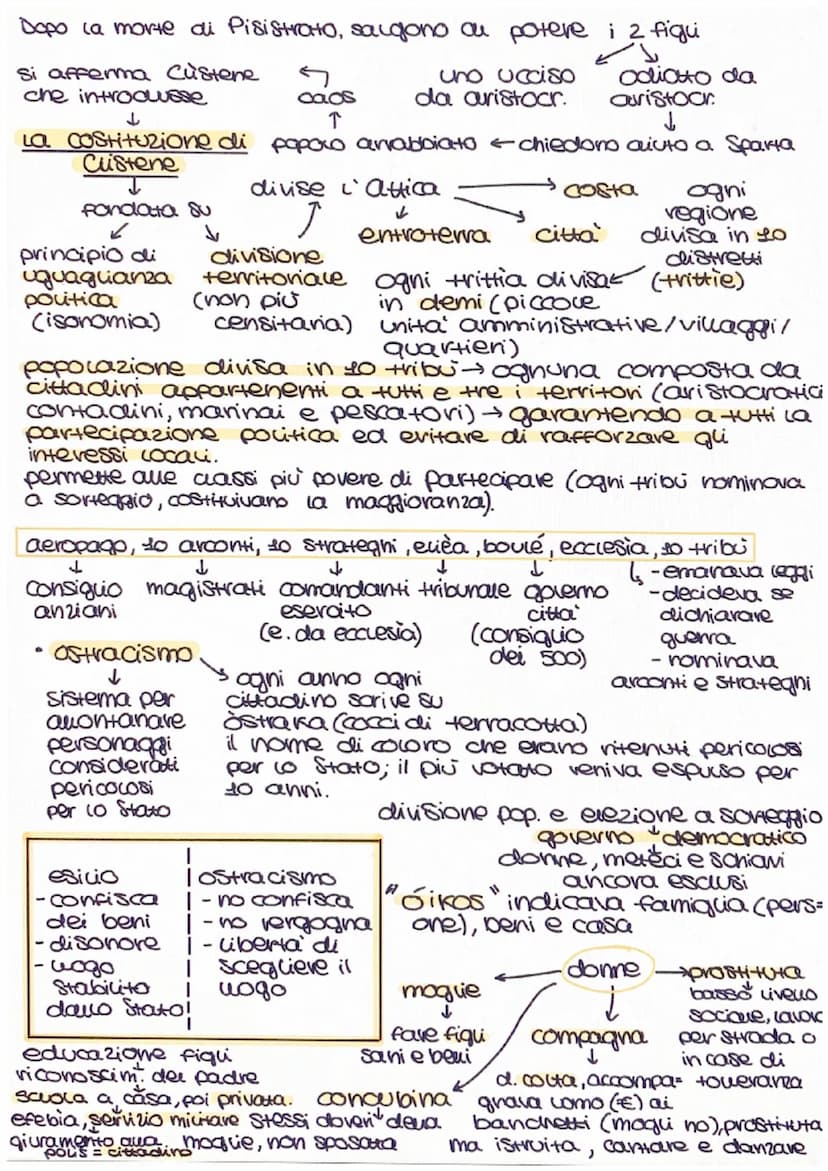 Dopo la morte di Pisistrato, salgono al potere i 2 figli
uno ucciso da aristocr.
odiato da aristocr.
chiedono aiuto a Sparta
popolo arrabbiato
caos
si afferma Clistene
che introdusse
La costituzione di
Clistene
fondata su
principio di
uguaglianza
politica
(isonomia)
divisione
territoriale
(non più
censitaria)
divise l'Attica
entroterra
città
costa
ogni
regione
divisa in 10
distretti
(trittie)
ogni trittia divisa
in demi (piccole
unità amministrative/villaggi/
quartieri)
popolazione divisa in 10 tribù → ognuna composta da
cittadini appartenenti a tutti e tre i territori (aristocratici
contadini, marinai e pescatori) → garantendo a tutti la
partecipazione politica ed evitare di rafforzare gli
interessi locali.
permette alle classi più povere di partecipare (ogni tribù nominava
a sorteggio, costituivano la maggioranza).
aeropago, 10 arconti, 10 strateghi, elièa, boulé, ecclesìa, 10 tribù
consiglio
anziani
magistrati
comandanti
esercito
(e. da ecclesìa)
tribunale
governo
città
(consiglio
dei 500)
- emanava leggi
- decideva se
dichiarare
guerra
- nominava
arconti e strateghi
• ostracismo
sistema per
allontanare
personaggi
considerati
pericolosi
per lo Stato
ogni anno ogni
cittadino scrive su
òstraka (cocci di terracotta)
il nome di coloro che erano ritenuti pericolosi
per lo Stato; il più votato veniva espulso per
10 anni.
divisione pop. e elezione a sorteggio
governo democratico
donne, metèci e schiavi
ancora esclusi
esilio
- confisca
dei beni
- disonore
- luogo
stabilito
dallo Stato
ostracismo
- no confisca
- no vergogna
- libertà di
scegliere il
luogo
"óikos" indicava famiglia (pers=
one), beni e casa
donne
moglie
fare figli
sani e belli
concubina
stessi doveri della
moglie, non sposata
compagna
d. colta, accompa=
gnava uomo (€) ai
banchetti (mogli no), prostituta
ma istruita, cantare e danzare
prostituta
basso livello
sociale, lavor
per strada o
in case di
tolleranza
educazione figli
riconoscim. del padre
scuola a casa, poi privata.
efebìa, servizio militare
giuramento alla
polis = cittadino